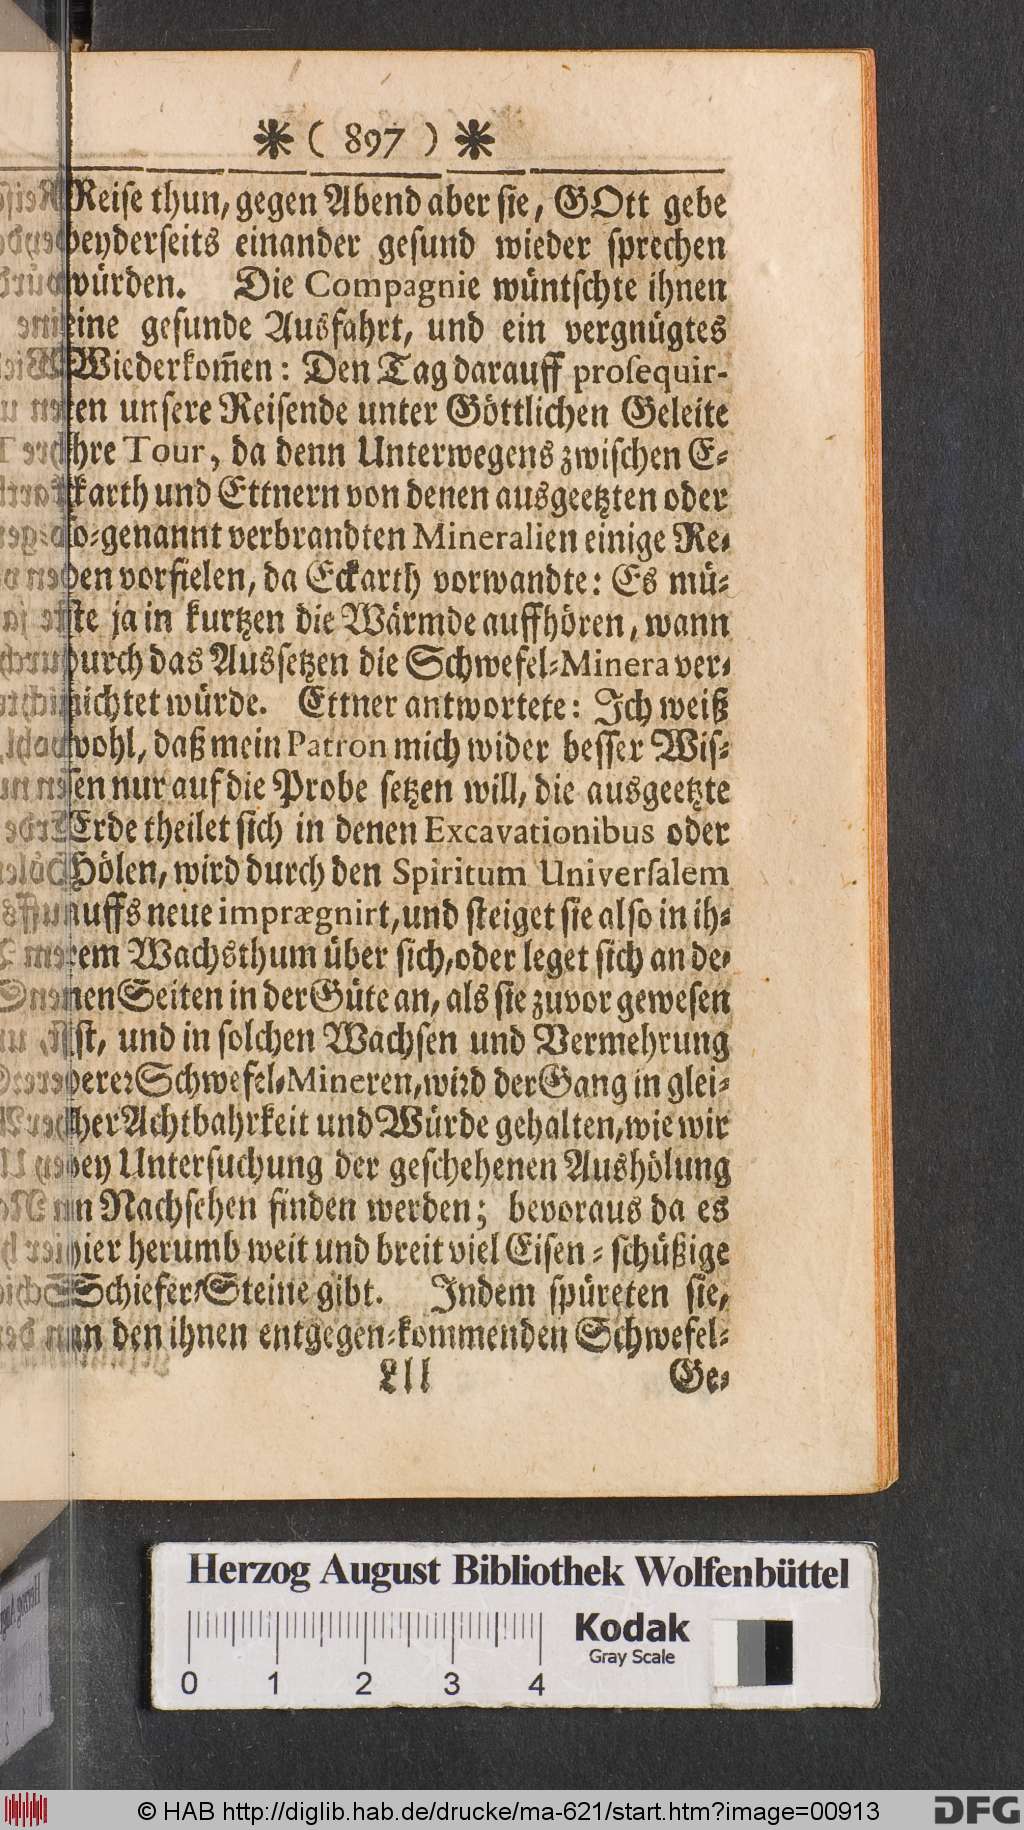 ❋ ( 897 ) ❋
Reise thun, gegen Abend aber sie, GOtt gebe
beyderseits einander gesund wieder sprechen
würden. Die Compagnie wüntschte ihnen
eine gesunde Ausfahrt, und ein vergnügtes
Wiederkom̃en: Den Tag darauff prosequir-
ten unsere Reisende unter Göttlichen Geleite
ihre Tour, da denn Unterwegens zwischen E-
ckarth und Ettnern von denen ausgeetzten oder
so-genannt verbrandten Mineralien einige Re-
den vorfielen, da Eckarth vorwandte: Es mü-
ste ja in kurtzen die Wärmde auffhören, wann
durch das Aussetzen die Schwefel-Minera ver-
nichtet würde. Ettner antwortete: Ich weiß
wohl, daß mein Patron mich wider besser Wis-
sen nur auf die Probe setzen will, die ausgeetzte
Erde theilet sich in denen Excavationibus oder
Hölen, wird durch den Spiritum Universalem
auffs neue imprægnirt, und steiget sie also in ih-
rem Wachsthum über sich, oder leget sich an de-
nen Seiten in der Güte an, als sie zuvor gewesen
ist, und in solchen Wachsen und Vermehrung
derer Schwefel-Mineren, wird der Gang in glei-
cher Achtbahrkeit und Würde gehalten, wie wir
bey Untersuchung der geschehenen Aushölung
im Nachsehen finden werden; bevoraus da es
hier herumb weit und breit viel Eisen-schüßige
Schiefer-Steine gibt. Indem spüreten sie,
an den ihnen entgegen-kommenden Schwefel-
Lll Ge-
Herzog August Bibliothek Wolfenbüttel
0 1 2 3 4
Kodak
Gray Scale
© HAB http://diglib.hab.de/drucke/ma-621/start.htm?image=00913
DFG